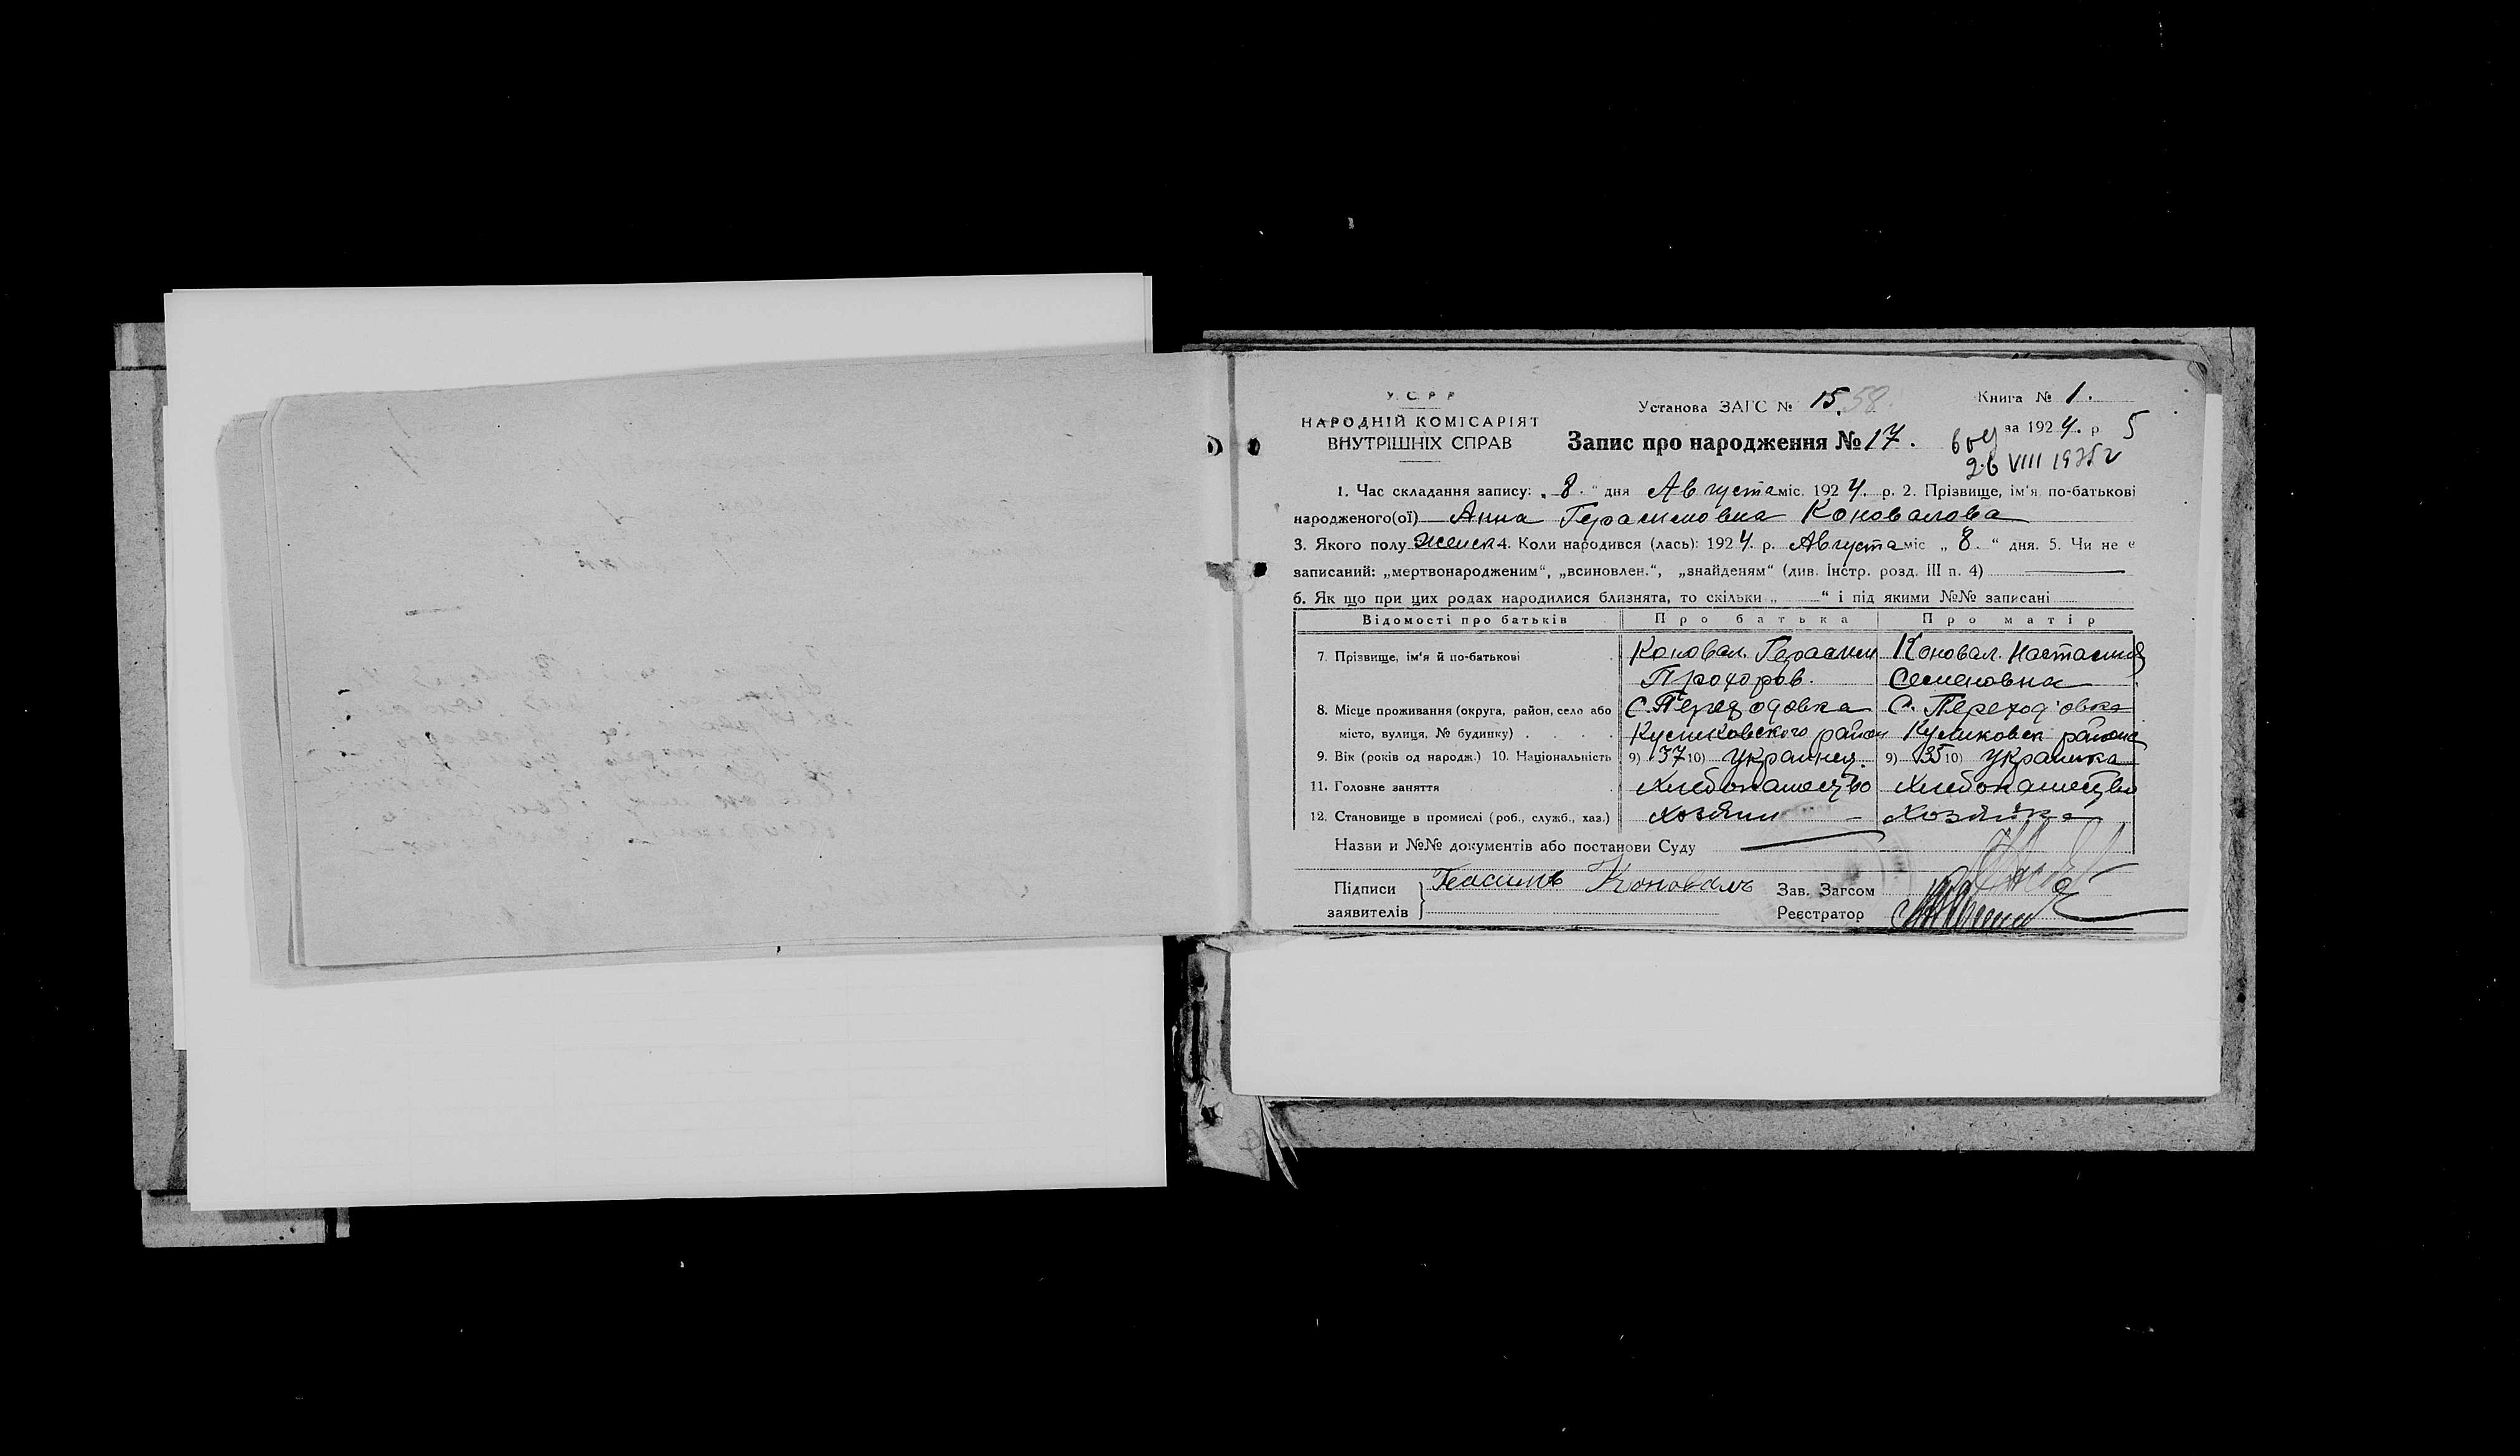 У. С. Р. Р.
НАРОДНІЙ КОМІСАРІЯТ
ВНУТРІШНІХ СПРАВ
Установа ЗАГС № 15. 58.
Запис про народження № 17.
Книга № 1.
за 1924. р. 5
26 VIII 1925 г
1. Час складання запису: „ 8. “ дня Августа міс. 1924. р. 2. Прізвище, ім'я, по-батькові
народженого(ої) Анна Герасимовна Коновалова
3. Якого полу женск 4. Коли народився (лась): 1924. р. Августа міс „ 8. “ дня. 5. Чи не є
записаний: „мертвонародженим“, „всиновлен.“, „знайденям“ (див. Інстр. розд. III п. 4)
6. Як що при цих родах народилися близнята, то скільки „ “ і під якими №№ записані
Відомості про батьків Про батька Про матір
7. Прізвище, ім'я й по-батькові Коновал. Герасим Коновал. Настасия
Прохоров. Семеновна
8. Місце проживання (округа, район, село або С. Переходовка С. Переходовка
місто, вулиця, № будинку) Куликовского район Куликовск района
9. Вік (років од народж.) 10. Національність 9) 37 10) Украинец. 9) 35 10) Украинка
11. Головне заняття Хлебопашество Хлебопашество
12. Становище в промислі (роб., служб., хаз.) Хозяин Хозяйка
Назви и №№ документів або постанови Суду
Підписи заявителів Герасимъ Коновалъ Зав. Загсом
Реєстратор